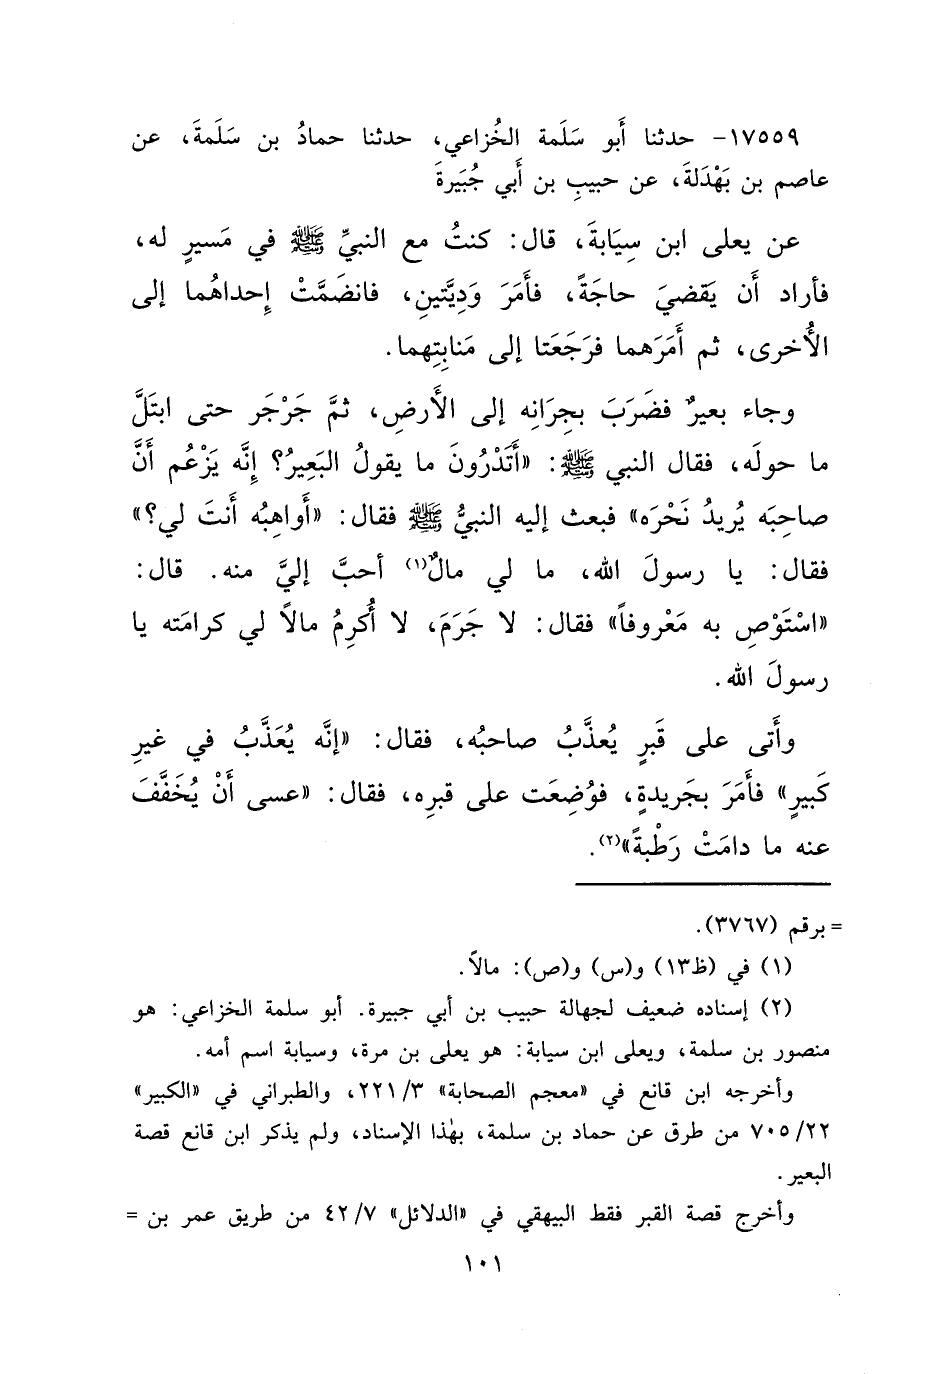 ١٧٥٥٩- حدثنا أَبو سَلَمة الخُزاعي، حدثنا حمادُ بن سَلَمةَ، عن
عاصم بن بَهْدَلةَ، عن حبيبِ بن أَبي جُبَيرةَ
عن يعلى ابن سِيَابةَ، قال: كنتُ مع النبيِّ ﷺ في مَسيرٍ له،
فأراد أَن يَقضيَ حاجَةً، فأَمَرَ وَدِيَّتينِ، فانضَمَّتْ إِحداهُما إلى
الأُخرى، ثم أَمَرَهما فرَجَعَتا إلى مَنابِتِهما.
وجاء بعيرٌ فضَرَبَ بجِرَانِه إلى الأَرضِ، ثمَّ جَرْجَر حتى ابتَلَّ
ما حولَه، فقال النبي ﷺ: «أَتَدْرُونَ ما يقولُ البَعِيرُ؟ إِنَّه يَزْعُم أَنَّ
صاحِبَه يُريدُ نَحْرَه» فبعث إليه النبيُّ ﷺ فقال: «أَواهِبُه أَنتَ لي؟»
فقال: يا رسولَ الله، ما لي مالٌ(١) أحبَّ إليَّ منه. قال:
«اسْتَوْصِ به مَعْروفاً» فقال: لا جَرَمَ، لا أُكرِمُ مالاً لي كرامَته يا
رسولَ الله.
وأَتى على قَبرٍ يُعذَّبُ صاحبُه، فقال: «إنَّه يُعَذَّبُ في غيرِ
كَبيرٍ» فأَمَرَ بجَريدةٍ، فوُضِعَت على قبرِه، فقال: «عسى أَنْ يُخَفَّفَ
عنه ما دامَتْ رَطْبةً»(٢).
= برقم (٣٧٦٧).
(١) في (ظ١٣) و(س) و(ص): مالاً.
(٢) إسناده ضعيف لجهالة حبيب بن أبي جبيرة. أبو سلمة الخزاعي: هو
منصور بن سلمة، ويعلى ابن سيابة: هو يعلى بن مرة، وسيابة اسم أمه.
وأخرجه ابن قانع في «معجم الصحابة» ٢٢١/٣، والطبراني في «الكبير»
٧٠٥/٢٢ من طرق عن حماد بن سلمة، بهٰذا الإسناد، ولم يذكر ابن قانع قصة
البعير.
وأخرج قصة القبر فقط البيهقي في «الدلائل» ٤٢/٧ من طريق عمر بن =
١٠١